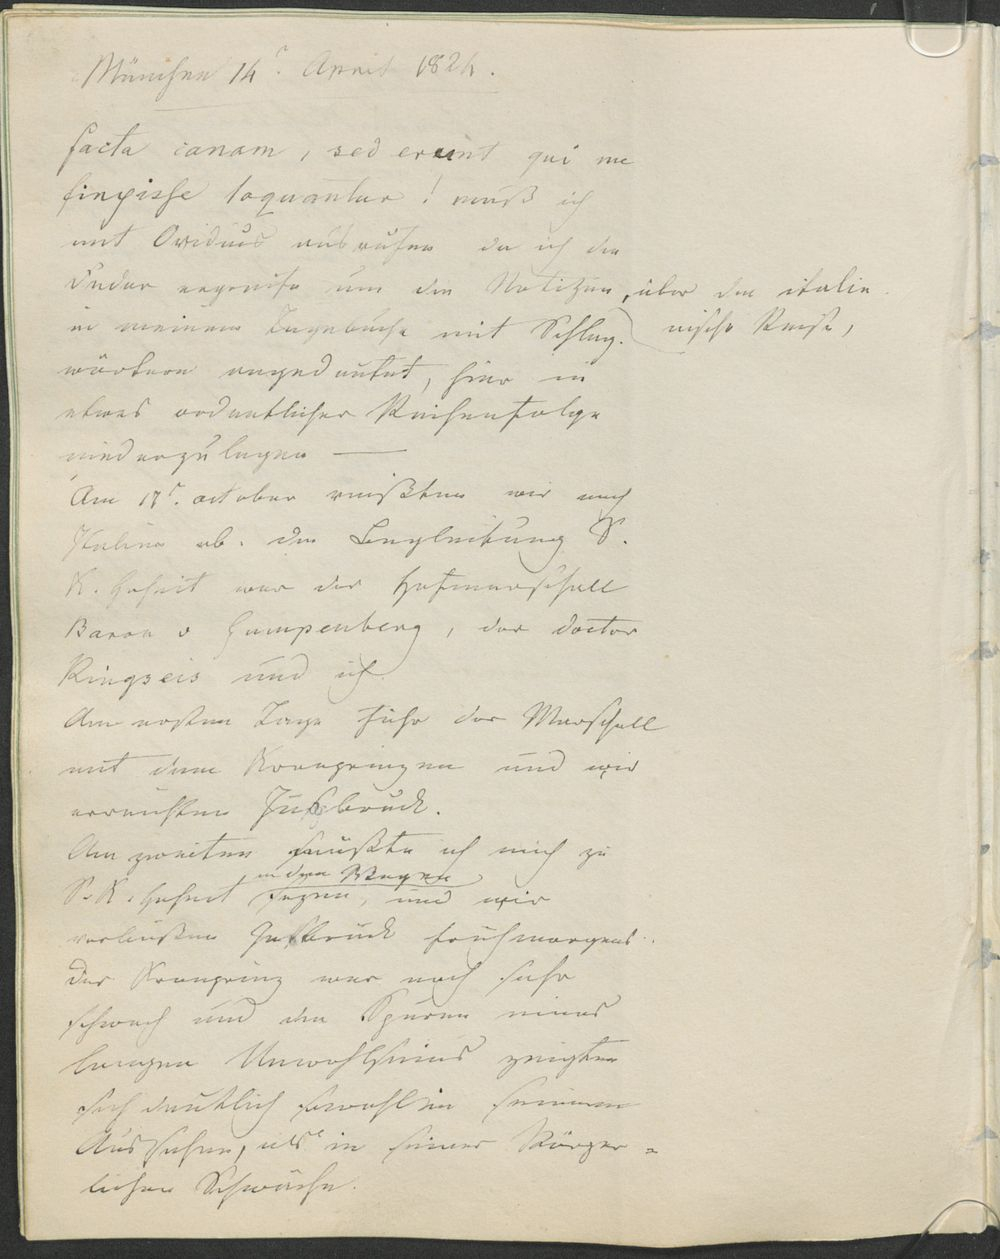 München 14ʳ. April 1824.
facta canam, sed erunt qui me
finxisse loquantur! muß ich
mit Ovidius ausrufen da ich die
Feder ergreife um die Notitzen, über die italie
in meinem Tagebuche mit Schlag- nische Reise,
wörtern angedeutet, hier in
etwas ordentlicher Reihenfolge
niederzulegen —
Am 17ʳ. october reißten wir nach
Italien ab. die Begleitung S.
K. Hoheit war der Hofmarschall
Baron v Gumpenberg, der doctor
Ringseis und ich.
Am ersten Tage fuhr der Marschall
mit dem Kronprinzen und wir
erreichten Insbruck.
Am zweiten mußte ich mich zu
in den Wagen
S. K. Hoheit setzen, und wir
verließen Insbruck frühmorgens.
Der Kronprinz war noch sehr
schwach und die Spuren eines
langen Unwohlseins zeigten
sich deutlich sowohl in seinem
Aussehen, als in seiner Körper=
lichen Schwäche.